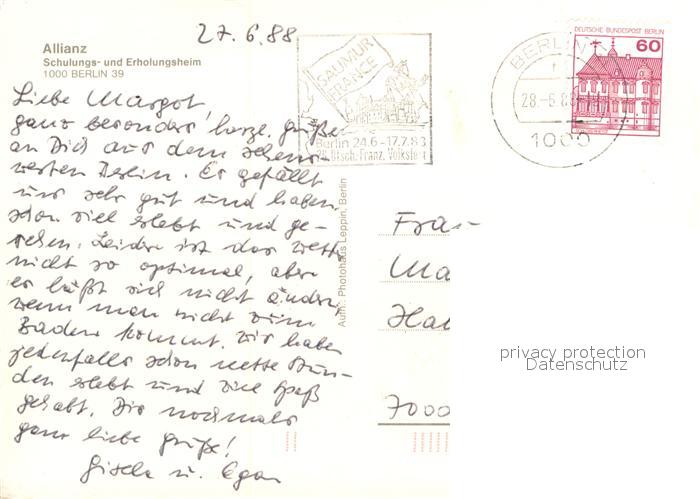 27.6.88
Allianz
Schulungs- und Erholungsheim
1000 BERLIN 39
Liebe Margot!
ganz besonders herzl. Grüße
an Dich aus dem sehens-
werten Berlin. Es gefällt
uns sehr gut und haben
schon viel erlebt und ge-
sehen. Leider ist das Wetter
nicht so optimal, aber
es läßt sich nicht ändern,
wenn man nicht zum
Baden kommt. Wir haben
jedenfalls schon nette Stun-
den erlebt und viel Spaß
gehabt. Dir nochmals
ganz liebe Grüße!
Gisela u. Egon
SAUMUR
FRANCE
Berlin 24.6-17.7.88
Dtsch. Franz. Volksfest
BERLIN
28.-6.88
1000
DEUTSCHE BUNDESPOST BERLIN
60
Aufn.: Photohaus Leppin, Berlin
Frau
Ma
Ha
7000
privacy protection
Datenschutz